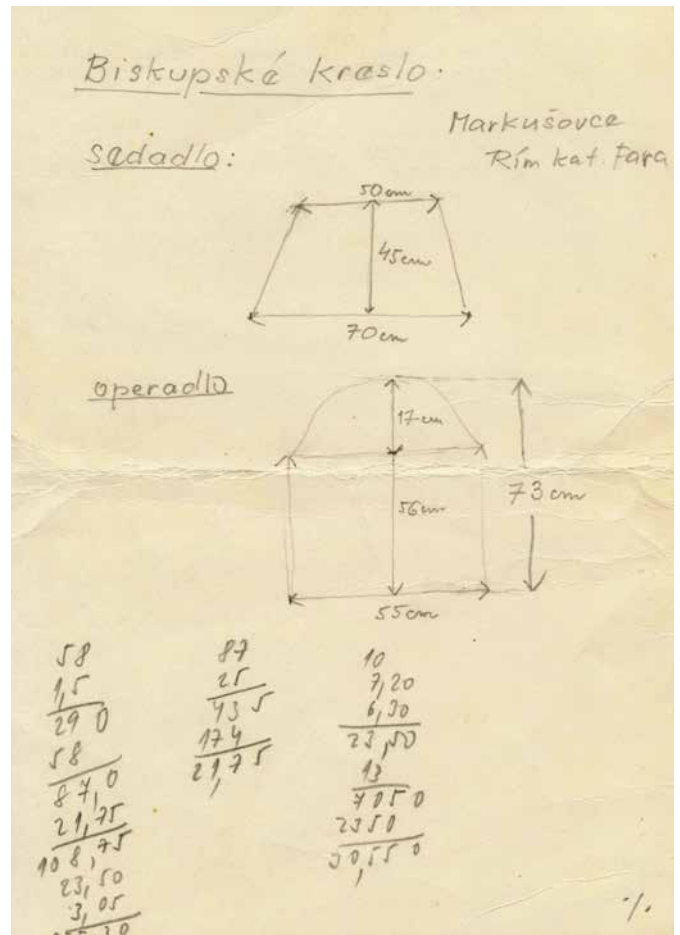 Biskupské kreslo.
Markušovce
Rím kat. Fara
sedadlo:
50 cm
45 cm
70 cm
operadlo
17 cm
56 cm
73 cm
55 cm
58
1,5
29 0
58
87,0
21,75
108,75
23,50
3,05
87
25
43 5
174
21,75
10
7,20
6,30
23,50
13
7050
2350
30,550
·/.